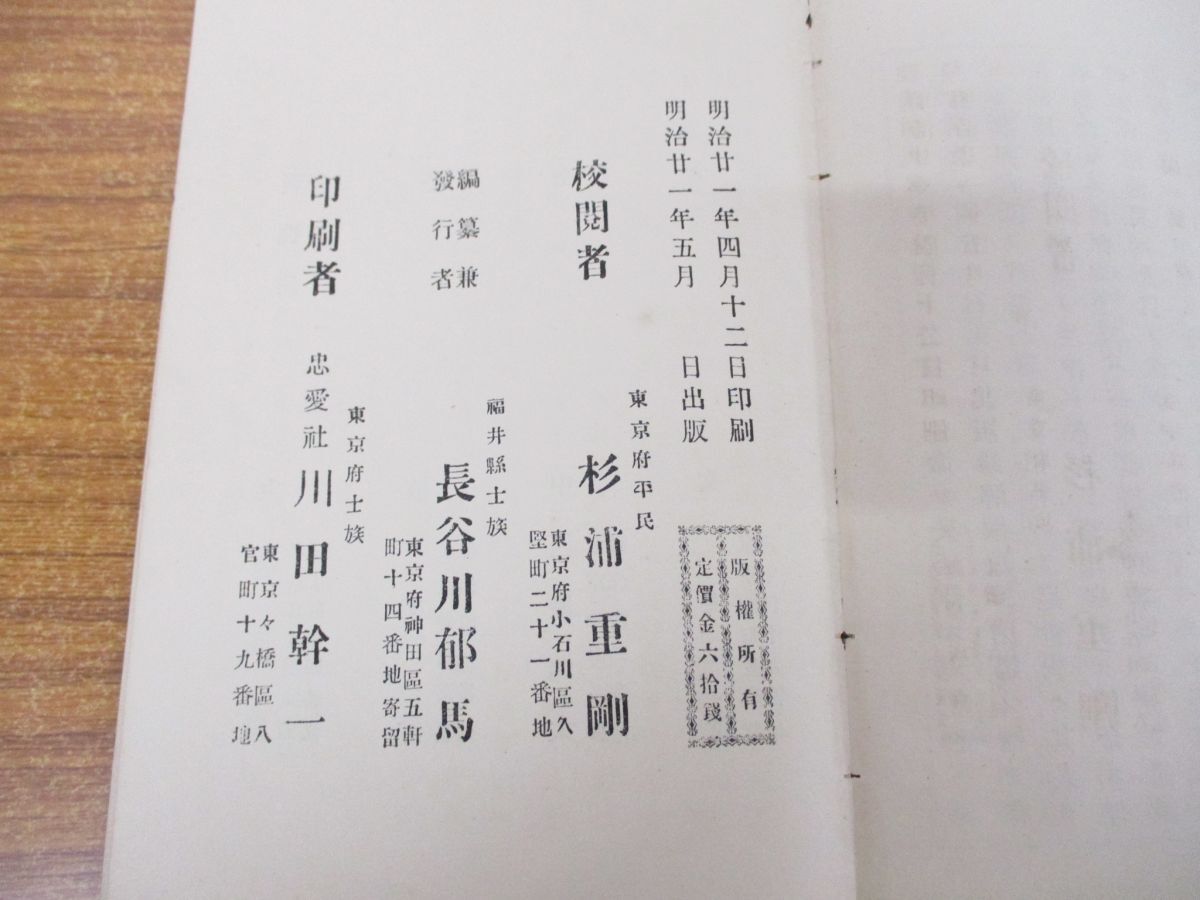 明治廿一年四月十二日印刷
明治廿一年五月　　日出版
版權所有
定價金六拾錢
東京府平民
校閲者　杉浦重剛
東京府小石川區久
堅町二十一番地
福井縣士族
編纂兼
發行者　長谷川郁馬
東京府神田區五軒
町十四番地寄留
東京府士族
印刷者　忠愛社　川田幹一
東京々橋區八
官町十九番地